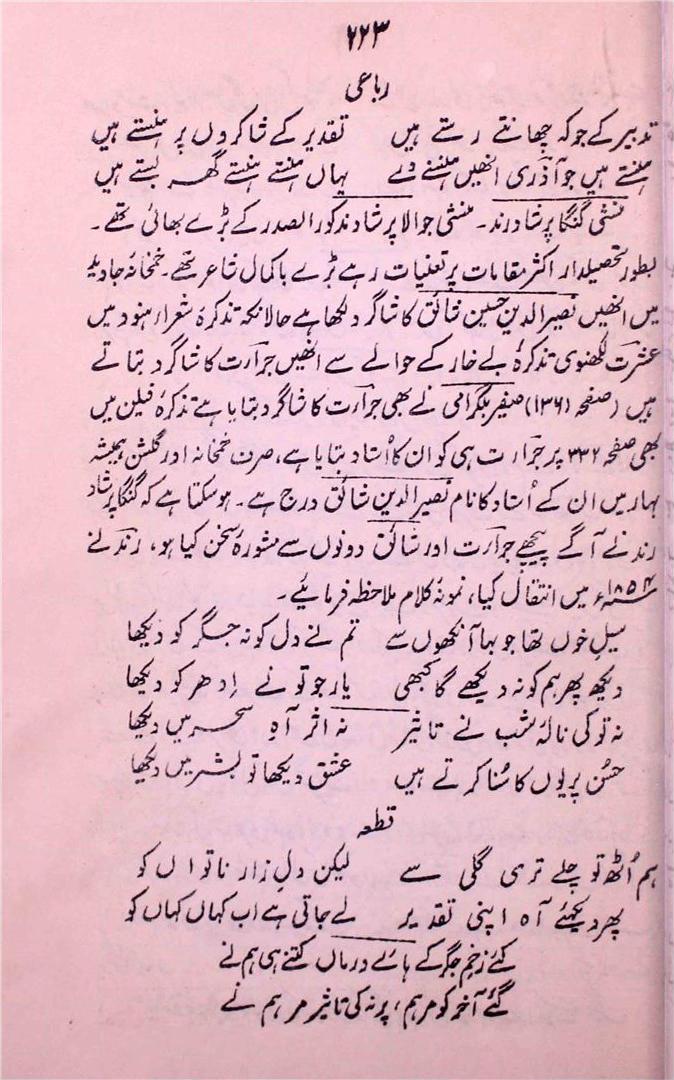 ۲۲۳
رباعی
تدبیر کے جو کہ چھانتے رستے ہیں تقدیر کے شاکر دوں پر ہنستے ہیں
ہنستے ہیں جو آذری انھیں ہنسنے دے یہاں ہنستے ہنستے گھر بستے ہیں
منشی گنگا پرشاد رند۔ منشی جوالا پرشاد مذکور الصدر کے بڑے بھائی تھے۔
بطور تحصیلدار اکثر مقامات پر تعنیات رہے بڑے باکمال شاعر تھے۔ خمخانۂ جاوید
میں انھیں نصیر الدین حسین شائق کا شاگرد لکھا ہے حالانکہ تذکرۂ شعرار ہنود میں
عشرت لکھنوی تذکرۂ بے خار کے حوالے سے انھیں جرأت کا شاگرد بتاتے
ہیں (صفحہ ۱۳۶) صفیر بلگرامی نے بھی جرأت کا شاگرد بتایا ہے تذکرۂ فیلن میں
بھی صفحہ ۳۳۲ پر جرأت ہی کو ان کا اُستاد بتایا ہے، صرف خمخانہ اور گلشن ہمیشہ
بہار میں ان کے اُستاد کا نام نصیر الدین شائق درج ہے۔ ہو سکتا ہے کہ گنگا پرشاد
رند نے آگے پیچھے جرأت اور شائق دونوں سے مشورۂ سخن کیا ہو، رند نے
۱۸۵۴ء میں انتقال کیا، نمونۂ کلام ملاحظہ فرمائیے۔
سیلِ خوں تھا جو بہا آنکھوں سے تم نے دل کو نہ جگر کو دیکھا
دیکھ پھر ہم کو نہ دیکھے گا کبھی یار جو تو نے اِدھر کو دیکھا
نہ تو کی نالۂ شب نے تاثیر نہ اثر آہِ سحر میں دیکھا
حسُن پریوں کا سُنا کرتے ہیں عشق دیکھا تو بشر میں دیکھا
قطعہ
ہم اُٹھ تو چلے تری گلی سے لیکن دلِ زار ناتواں کو
پھر دیکھئے آہ اپنی تقدیر لے جاتی ہے اب کہاں کہاں کو
کئے زخمِ جگر کے ہائے درماں کتنے ہی ہم نے
گئے آخر کو مرہم، پر نہ کی تاثیر مرہم نے